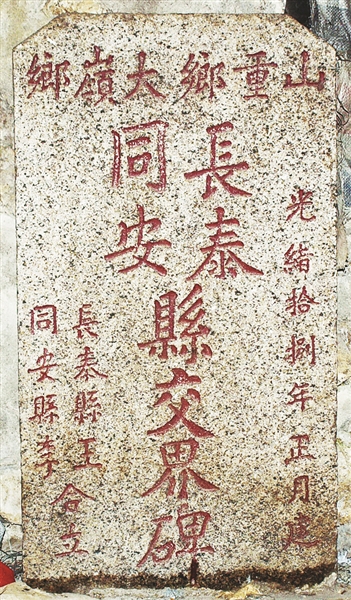 山重鄉大嶺鄉
光緒拾捌年正月建
長泰
同安
縣交界碑
長泰縣王
同安縣李
合立